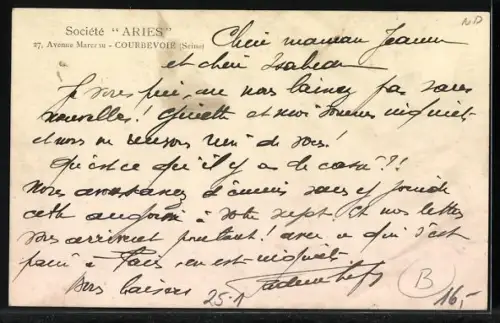 Société "ARIES"
27, Avenue Marceau - COURBEVOIE (Seine)
ND
Chère maman Jeanne
et chère Isabeau
Je vous prie, ne nous laissez pas sans
nouvelles! et moi sommes inquiets
et nous ne recevons rien de vous!
Qu'est ce qu'il y a de cassé??!
Nous avons assez d'ennuis sans y joindre
cette angoisse à votre sujet. Et nos lettres
vous arrivent pourtant! avec ce qui s'est
passé à Paris, on est inquiet.
Bons baisers
25.1
B
16,-